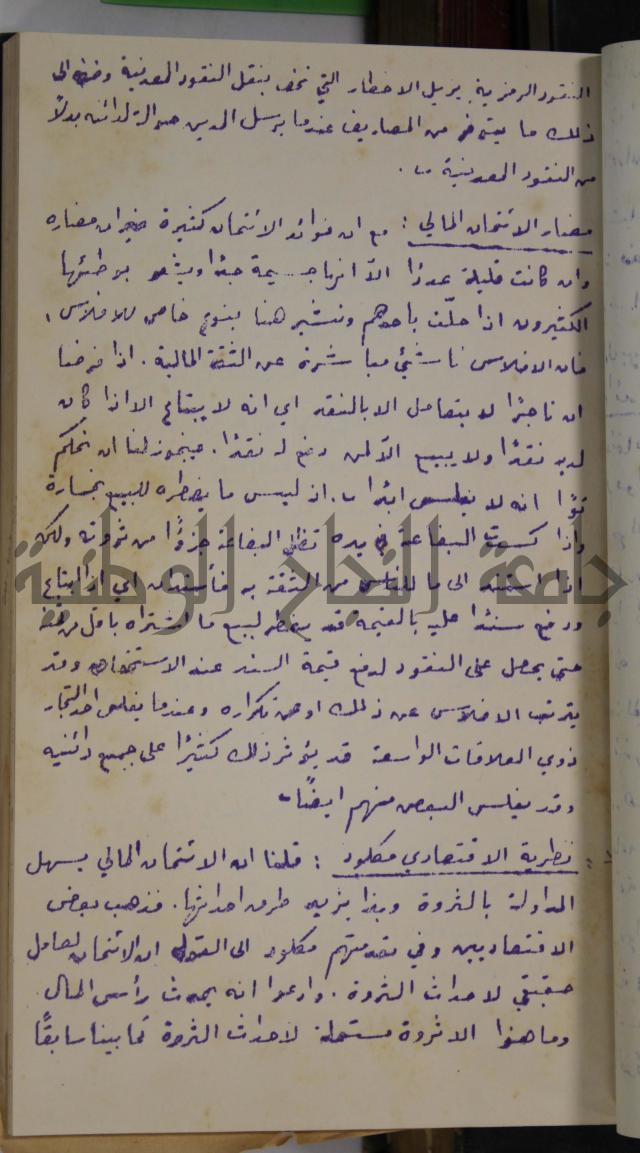 النقود الرمزية يزيل الاخطار التي تحف بنقل النقود المعدنية وضف الى
ذلك ما يتوفر من المصاريف عندما يرسل المدين حوالة لدائنه بدلاً
من النقود المعدنية .
مضار الائتمان المالي : مع ان فوائد الائتمان كثيرة غير ان مضاره
وان كانت قليلة عددًا الا انها جسيمة جدًا ويشعر بوطئتها
الكثيرون اذا حلّت باحدهم ونشير هنا بنوع خاص للافلاس ،
فان الافلاس ناشئ مباشرة عن الثقة المالية . اذا فرضنا
ان تاجرًا لا يتعامل الا بالنقد اي انه لا يبتاع الا اذا كان
لديه نقدًا ولا يبيع الاّ لمن دفع له نقدًا . فيجوز لنا ان نحكم
توًا انه لا يفلس ابدًا . اذ ليس ما يضطره للبيع بخسارة
واذا كسدت البضاعة في يده تظل البضاعة جزءًا من ثروته ولكن
اذا استند الى ما للناس من الثقة به فأستدان اي اذا ابتاع
ودفع سندًا عليه بالقيمة فقد يضطر لبيع ما اشتراه باقل من
حتى يحصل على النقود لدفع قيمة السند عند الاستحقاق وقد
يترتب الافلاس عن ذلك او عن تكراره وعندما يفلس احد التجار
ذوي العلاقات الواسعة قد يؤثر ذلك كثيرًا على جميع دائنيه
وقد يفلس البعض منهم ايضًا
نظرية الاقتصادي مكلود : قلنا ان الائتمان المالي يسهل
المداولة بالثروة وبذا يزيد طرق احداثها . فذهب بعض
الاقتصاديين وفي مقدمتهم مكلود الى القول ان الائتمان لعامل
حقيقي لاحداث الثروة . وادعوا انه يحدث رأس المال
وما هذا الا ثروة مستعملة لاحداث الثروة كما بينا سابقًا
جامعة النجاح الوطنية